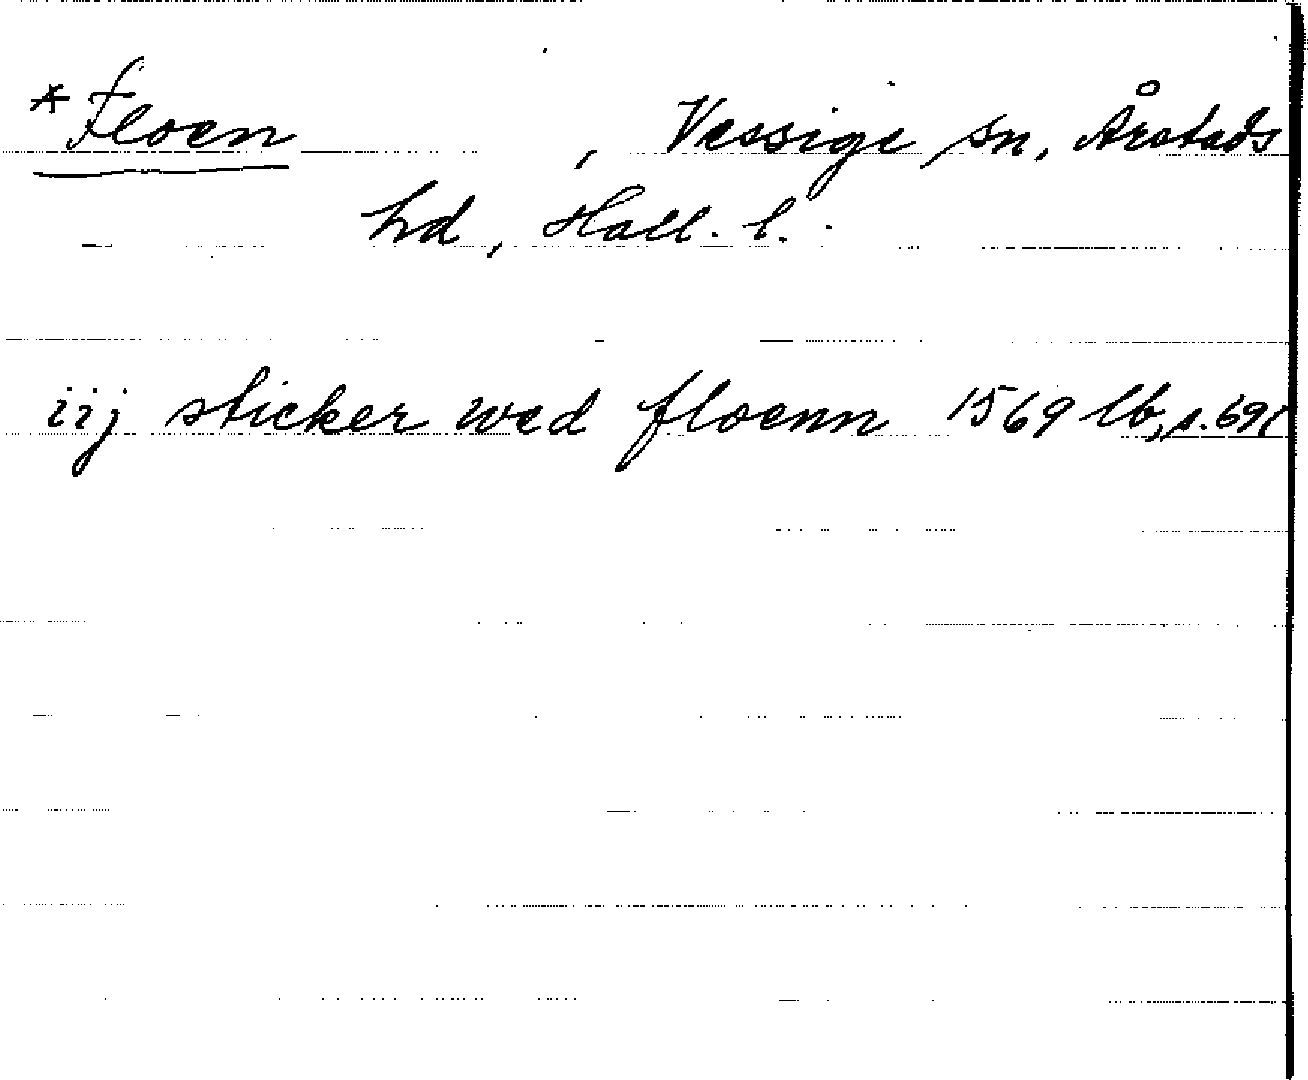 *Floen , Vessige sn, Årstads
hd, Hall. l.
iij sticker wed floenn 1569 lb, s. 691